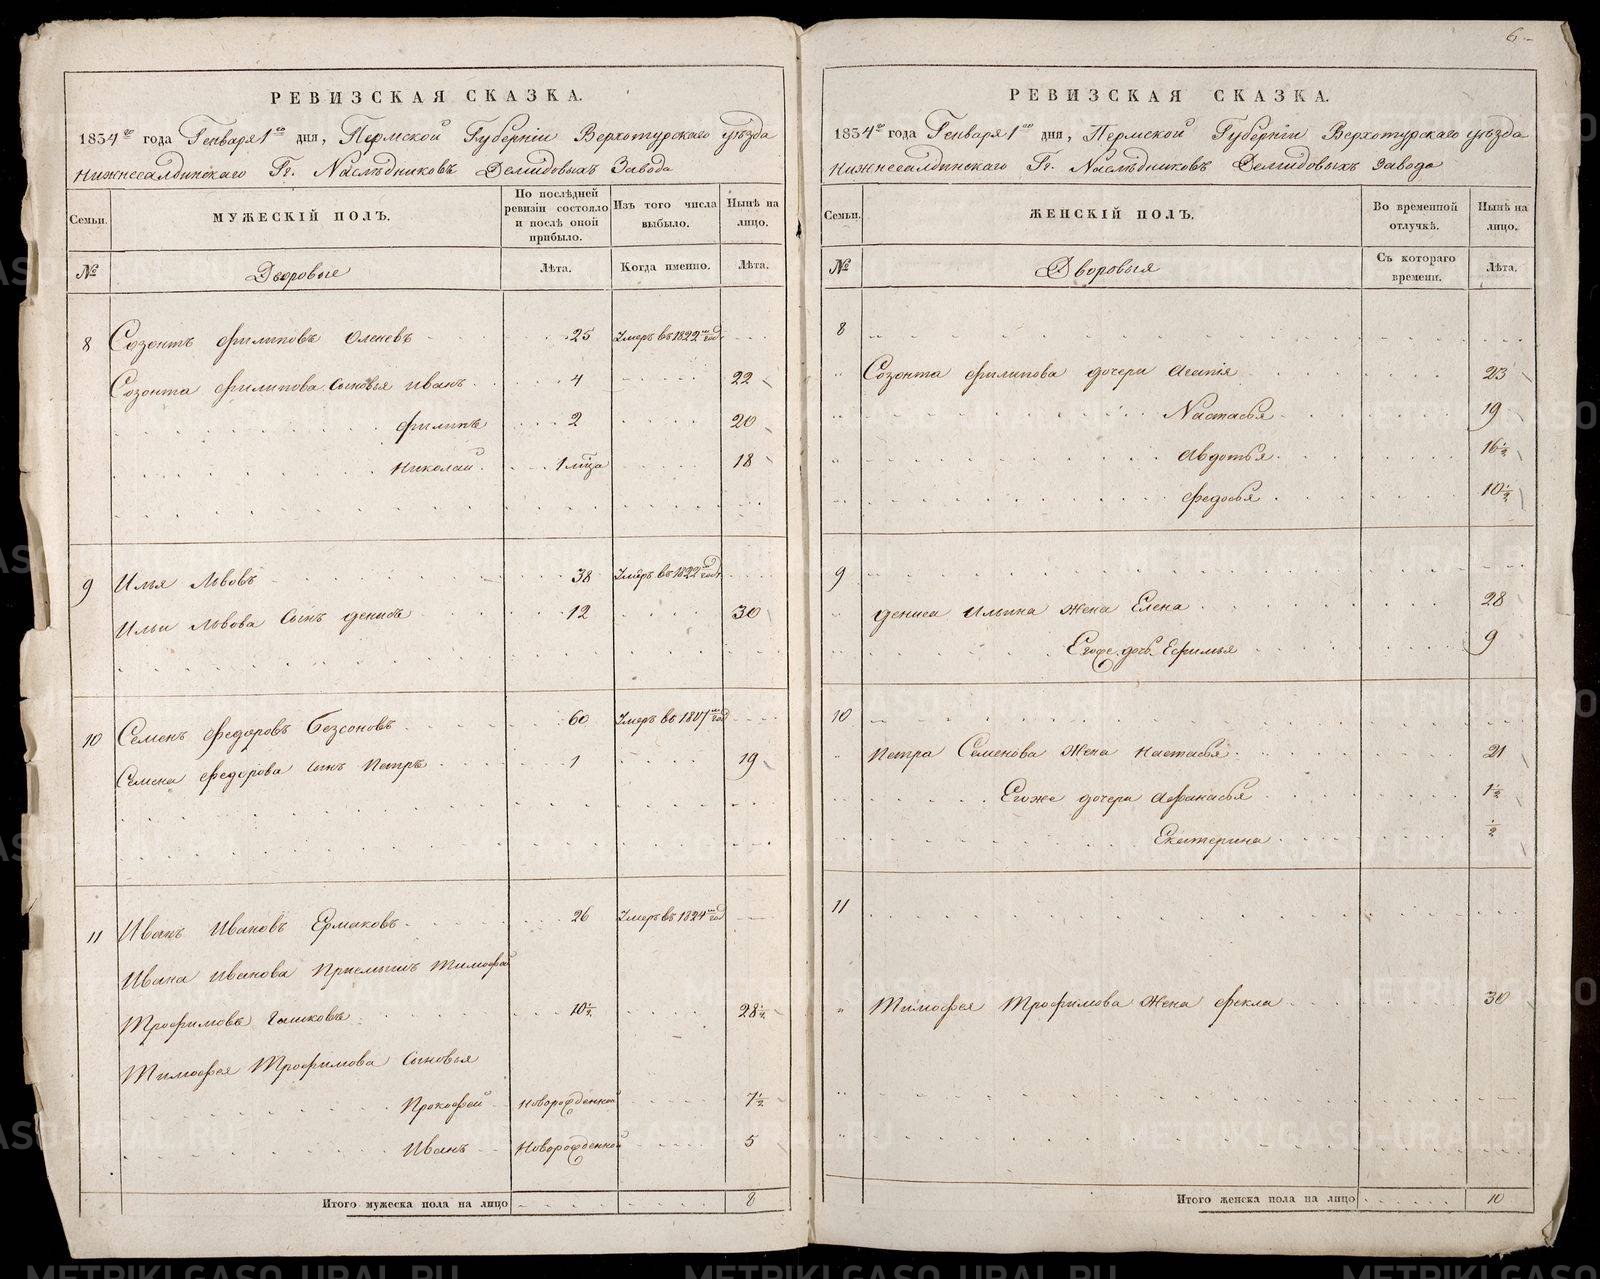 6.
РЕВИЗСКАЯ СКАЗКА.
1834го года Генваря 1го дня, Пермской Губерніи Верхотурскаго уѣзда
Нижнесалдинскаго Гг. Наслѣдниковъ Демидовыхъ Завода
Семьи. МУЖЕСКІЙ ПОЛЪ. По послѣдней ревизіи состояло и послѣ оной прибыло. Изъ того числа выбыло. Нынѣ на лицо.
№ Дворовые Лѣта. Когда именно. Лѣта.
8 Созонтъ Филиповъ Оленевъ 25 Умеръ въ 1822м год.
Созонта Филипова Сыновья Иванъ 4 22
Филипъ 2 20
Николай 1 мца 18
9 Илья Львовъ 38 Умеръ въ 1822м год.
Ильи Львова Сынъ Денисъ 12 30
10 Семенъ Федоровъ Безсоновъ 60 Умеръ въ 1817м год
Семена Федорова сынъ Петръ 1 19
11 Иванъ Ивановъ Ермаковъ 26 Умеръ въ 1824м год
Ивана Иванова Приемышъ Тимофей
Трофимовъ 10½ 28½
Тимофея Трофимова Сыновья
Прокофей Новорожденной 7½
Иванъ Новорожденной 5
Итого мужеска пола на лицо 8
РЕВИЗСКАЯ СКАЗКА.
1834го года Генваря 1го дня, Пермской Губерніи Верхотурскаго уѣзда
Нижнесалдинскаго Гг. Наслѣдниковъ Демидовыхъ Завода
Семьи. ЖЕНСКІЙ ПОЛЪ. Во временной отлучкѣ. Нынѣ на лицо.
№ Дворовыя Съ котораго времени. Лѣта.
8
Созонта Филипова дочери Агапія 23
Настасья 19
Авдотья 16½
Федосья 10½
9
Дениса Ильина жена Елена 28
Егоже дочь Ефимья 9
10
Петра Семенова жена Настасья 21
Егоже дочери Афанасья 1½
Екатерина ½
11
Тимофея Трофимова жена Фекла 30
Итого женска пола на лицо 10
METRIKI.GASO-URAL.RU